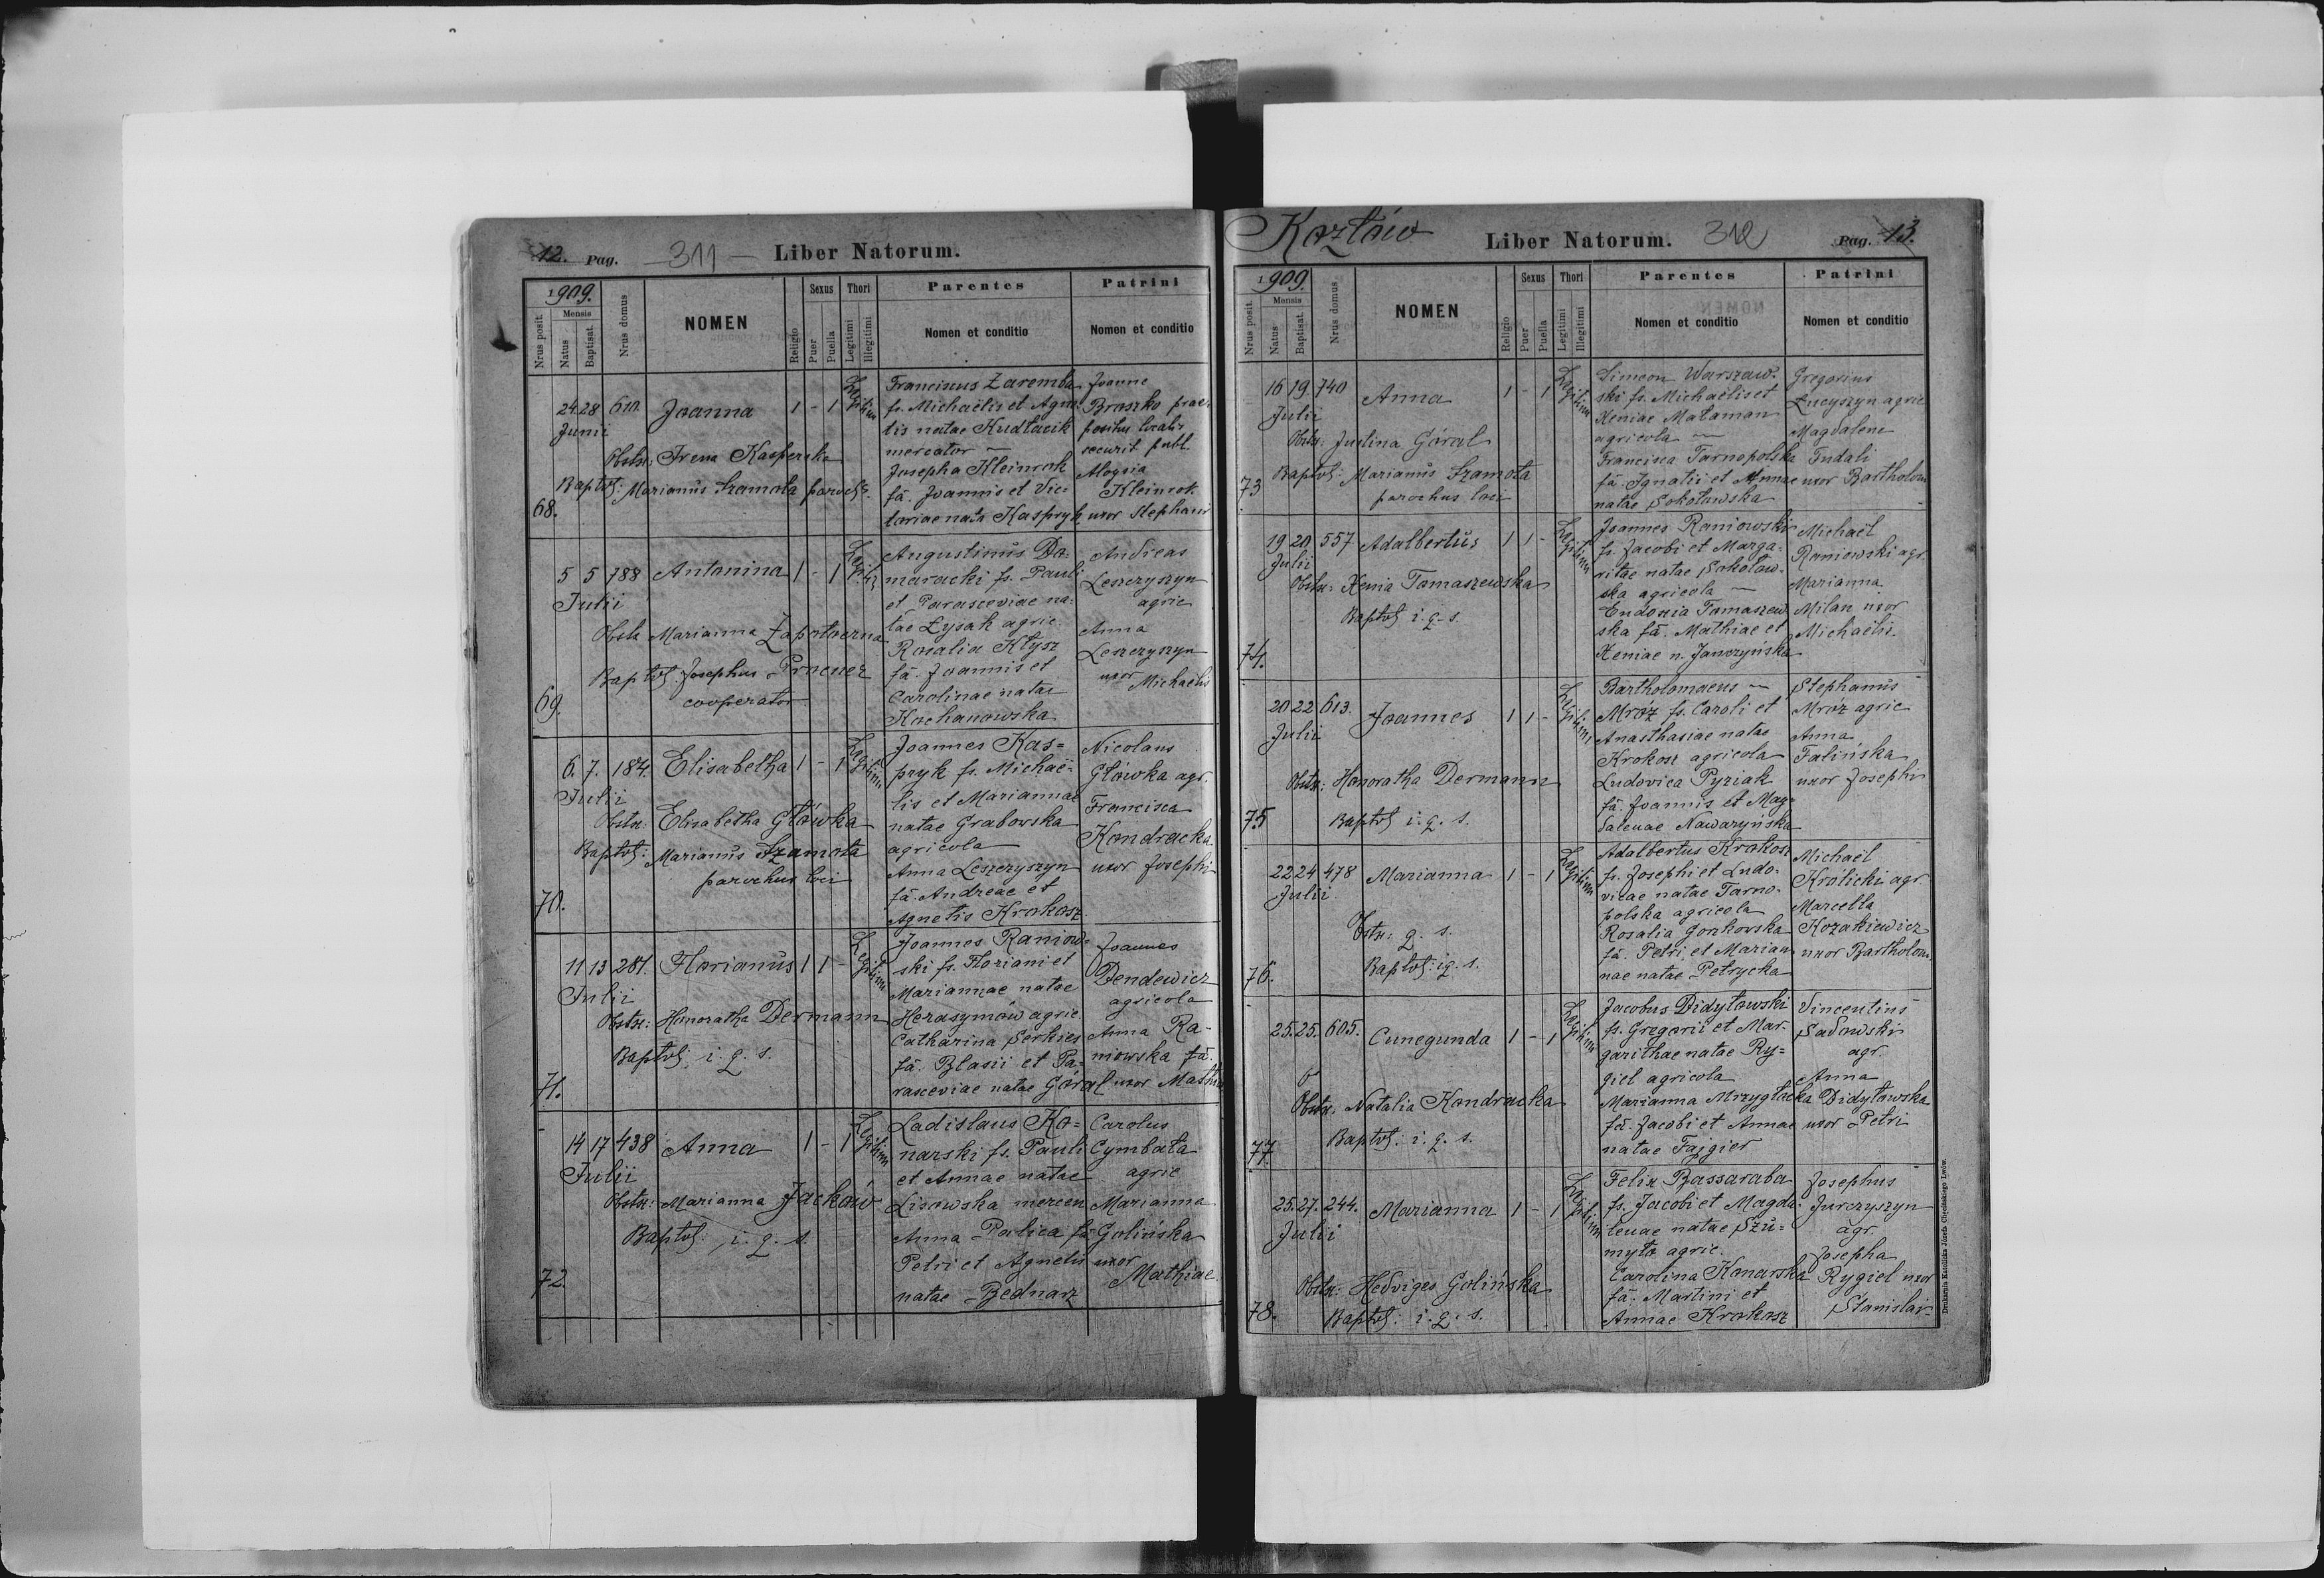 12. Pag. 311 Liber Natorum.
1909.
Nrus posit.
Mensis
Natus
Baptisat.
Nrus domus
NOMEN
Religio
Sexus
Puer
Puella
Thori
Legitimi
Illegitimi
Parentes
Nomen et conditio
Patrini
Nomen et conditio
68.
24 28 610. Joanna 1 - 1 Legitim
Junii
Obstx: Irena Kasperska
Baptvs: Marianus Szamota paroch
Franciscus Zaremba
fs. Michaëlis et Agne-
tis natae Kudłacik
mercator
Josepha Kleinrok
fa. Joannis et Vic-
toriae nata Kaspryk
Joanne
Broszko prae-
positus localis
securit publ.
Aloysia
Kleinrok
uxor Stephani
69.
5 5 788 Antonina 1 - 1 Legitim
Julii
Obstx Marianna Zapotoczna
Baptvs: Josephus
cooperator
Augustinus Do-
maracki fs. Pauli
et Parasceviae na-
tae Łysak agric
Rosalia Kłysz
fa. Joannis et
Carolinae natae
Kochanowska
Andreas
Leszczyszyn
agric
Anna
Leszczyszyn
uxor
Michaelis
70.
6. 7. 184. Elisabetha 1 - 1 Legitim
Julii
Obstx: Elisabetha Główka
Baptvs: Marianus Szamota
parochus loci
Joannes Kas=
pryk fs. Michaë-
lis et Mariannae
natae Grabowska
agricola
Anna Leszczyszyn
fa. Andreae et
Agnetis Krokosz.
Nicolaus
Główka agr.
Francisca
Kondracka
uxor Josephi
71.
11 13 281. Florianus 1 1 - Legitim
Julii
Obstx: Honoratha Dermann
Baptvs: i. q. s.
Joannes Raniow-
ski fs. Floriani et
Mariannae natae
Herasymów agric.
Catharina Serkies
fa. Blasii et Pa-
rasceviae natae Góral
Joannes
Dendewicz
agricola
Anna Ra-
niowska fa.
uxor
72.
14 17 438 Anna 1 - 1 Legitim
Julii
Obstx: Marianna Jacków
Baptvs: i. q. s.
Ladislaus Ko-
narski fs. Pauli
et Annae natae
Lisowska mercen
Anna Palica fa
Petri et Agnetis
natae Bednarz
Carolus
Cymbała
agric
Marianna
Golińska
uxor
Mathiae
Kozłów Liber Natorum. 312 Pag. 13.
1909.
Nrus posit.
Mensis
Natus
Baptisat.
Nrus domus
NOMEN
Religio
Sexus
Puer
Puella
Thori
Legitimi
Illegitimi
Parentes
Nomen et conditio
Patrini
Nomen et conditio
73
16 19 740 Anna 1 - 1 Legitim
Julii
Obstx: Justina Góral
Baptvs: Marianus Szamota
parochus loci
Simeon Warszaw-
ski fs. Michaëlis et
Xeniae Mataman
agricola
Francisca Tarnopolska
fa. Ignatii et Annae
natae Sokołowska
Gregorius
Łucyszyn agric
Magdalene
Fudali
uxor Bartholom
74.
19 20 557 Adalbertus 1 1 - Legitim
Julii
Obstx: Xenia Tomaszewska
Baptvs i. q. s.
Joannes Raniowski
fs. Jacobi et Marga-
ritae natae Sokołow-
ska agricola
Eudoxia Tomaszew
ska fa. Mathiae et
Xeniae n. Janczyńska
Michaël
Raniowski agr
Marianna
Milan uxor
Michaëlis.
75
20 22 613. Joannes 1 1 - Legitim
Julii
Obstx: Honoratha Dermann
Baptvs i. q. s.
Bartholomaeus
Mróz fs. Caroli et
Anasthasiae natae
Krokosz agricola
Ludovica Pyziak
fa. Joannis et Mag-
dalenae Nawaryńska
Stephanus
Mróz agric
Anna
Falińska
uxor Josephi
76.
22 24 478 Marianna 1 - 1 Legitim
Julii
Obstx: q. s.
Baptvs: i q. s.
Adalbertus Krokosz
fs. Josephi et Ludo-
vicae natae Tarno-
polska agricola
Rosalia Gorkowska
fa. Petri et Marian
nae natae Petrycka
Michaël
Królicki agr.
Marcella
Kozakiewicz
uxor Bartholom.
77.
25. 25. 605. Cunegunda 1 - 1 Legitim
Obstx: Natalia Kondracka
Baptvs: i. q. s.
Jacobus Didyłowski
fs. Gregorii et Mar-
garithae natae Ry=
giel agricola
Marianna Mrzygłocka
fa. Jacobi et Annae
natae Fajgier
Vincentius
Sadowski
agr.
Anna
Didyłowska
uxor Petri
78.
25. 27. 244. Marianna 1 - 1 Legitim
Julii
Obstx: Hedviges Golińska
Baptvs: i. q. s.
Felix Bassaraba
fs. Jacobi et Magda-
lenae natae Szu=
myło agric.
Carolina Konarska
fa. Martini et
Annae Krokosz
Josephus
Jurczyszyn
agr.
Josepha
Rygiel uxor
Stanislai
Drukarnia Katolicka Józefa Chęcińskiego Lwów.